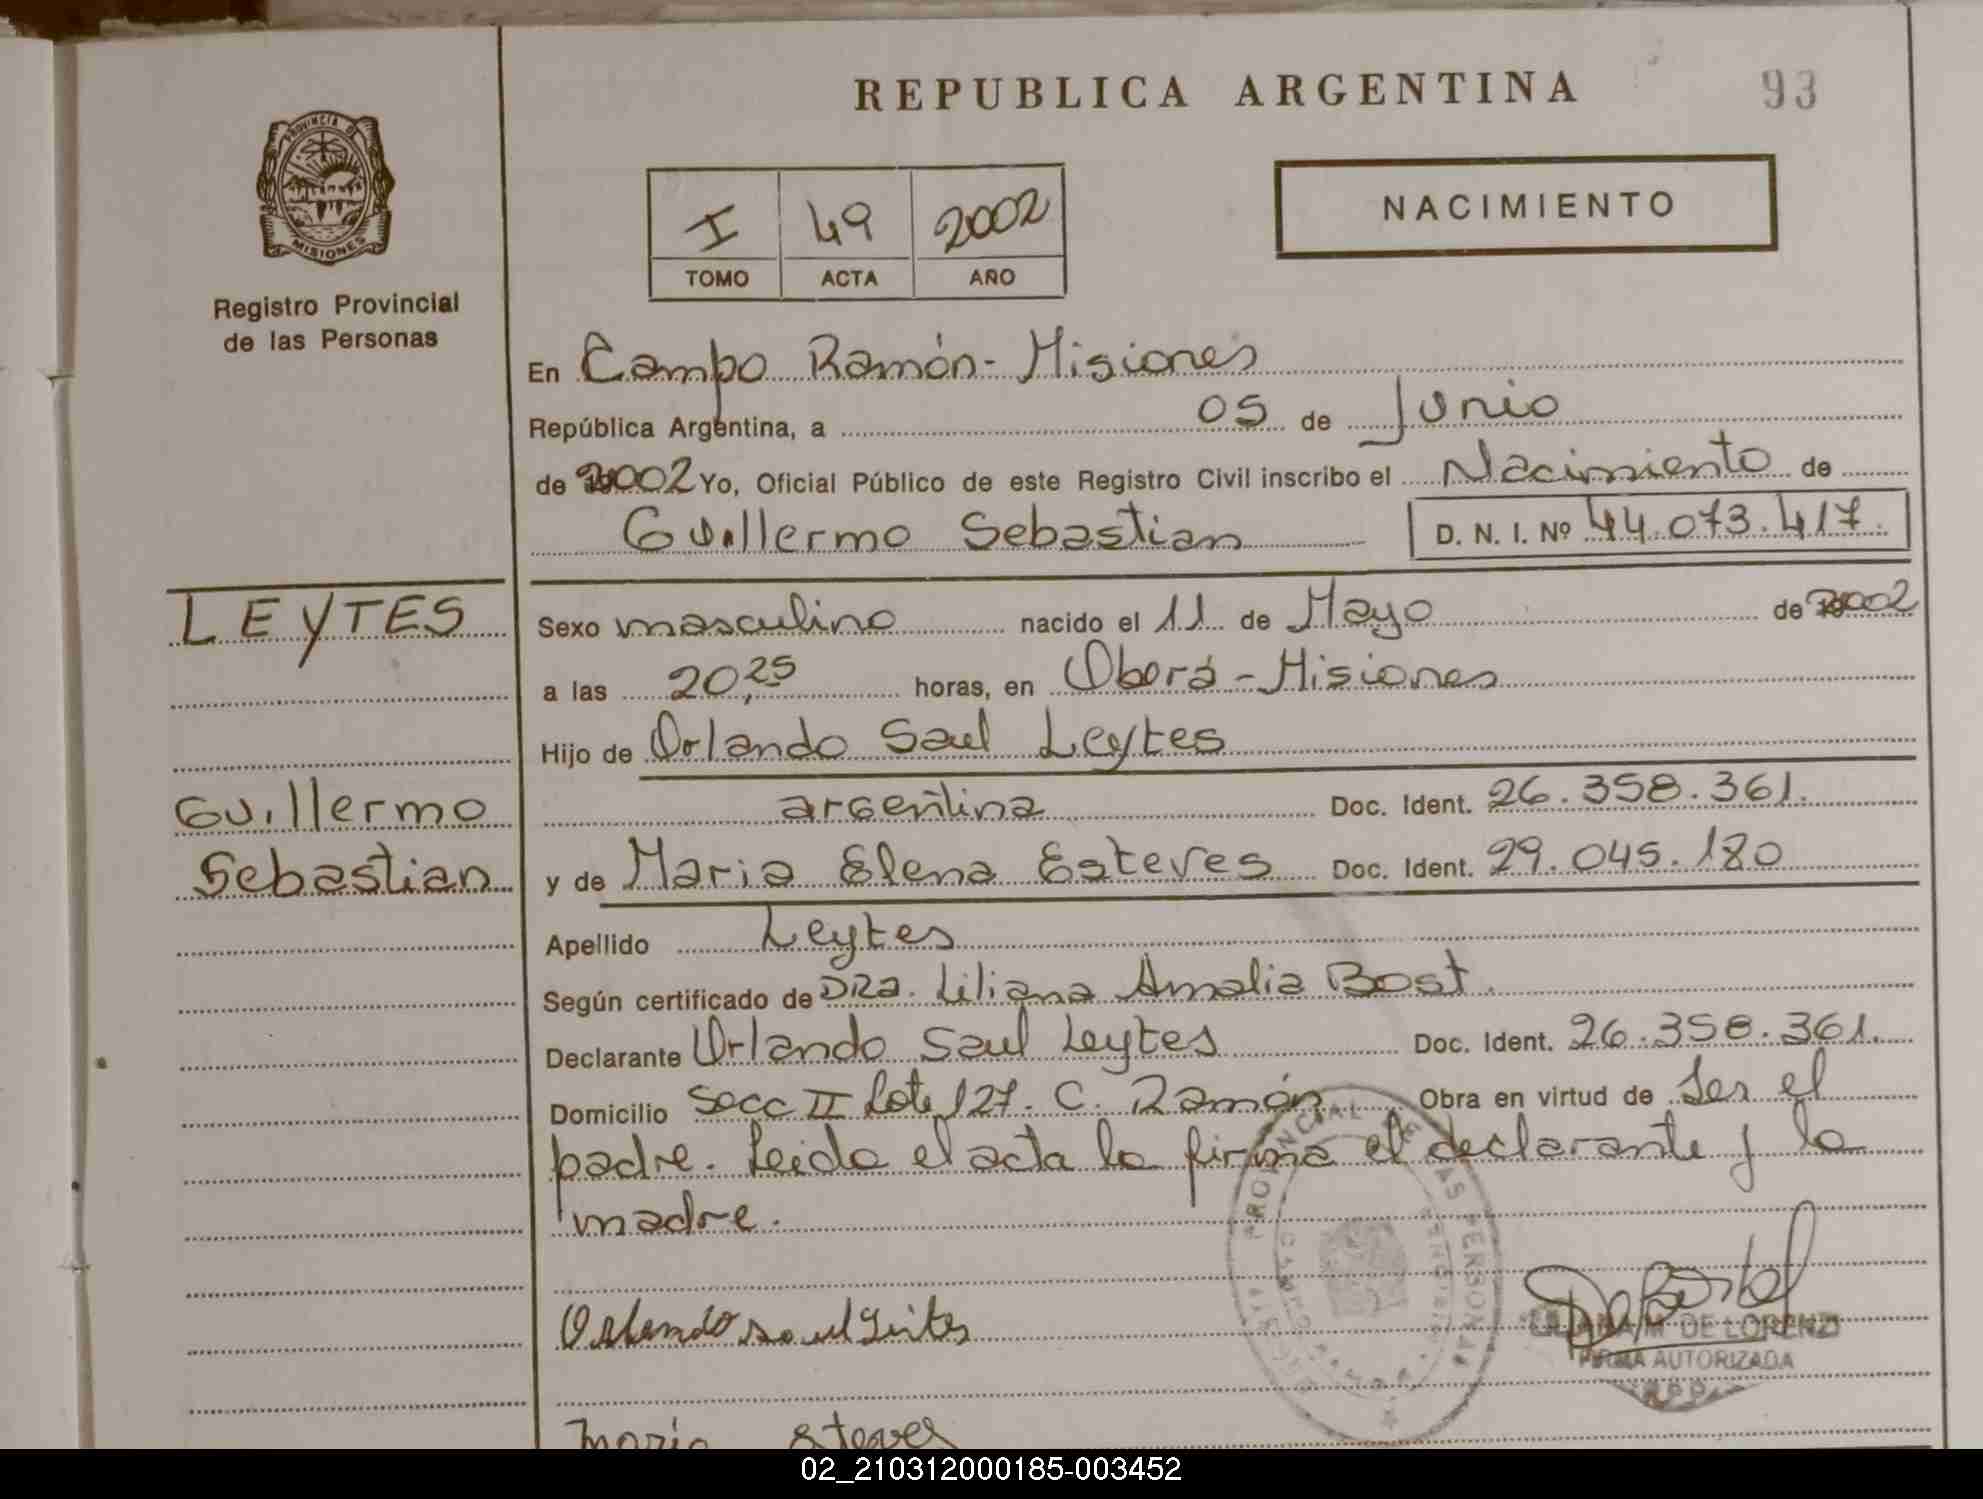 REPUBLICA ARGENTINA
93
PROVINCIA DE
MISIONES
Registro Provincial
de las Personas
I 49 2002
TOMO ACTA AÑO
NACIMIENTO
En Campo Ramón - Misiones
República Argentina, a 05 de Junio
de 2002 Yo, Oficial Público de este Registro Civil inscribo el Nacimiento de
Guillermo Sebastian D. N. I. Nº 44.073.417.
LEYTES
Sexo masculino nacido el 11 de Mayo de 2002
a las 20,25 horas, en Oberá - Misiones
Hijo de Orlando Saul Leytes
Guillermo
argentina Doc. Ident. 26.358.361.
Sebastian
y de Maria Elena Esteves Doc. Ident. 29.045.180
Apellido Leytes
Según certificado de DRa. Liliana Amalia Bost.
Declarante Orlando Saul Leytes Doc. Ident. 26.358.361.
Domicilio Secc II Lote 127. C. Ramón Obra en virtud de Ser el
padre. Leida el acta la firma el declarante y la
madre.
PROVINCIAL DE LAS PERSONAS
CAMPO RAMON
Orlando saul
LILIANA M. DE LORENZI
FIRMA AUTORIZADA
R.P.P.
maria esteves
02_210312000185-003452